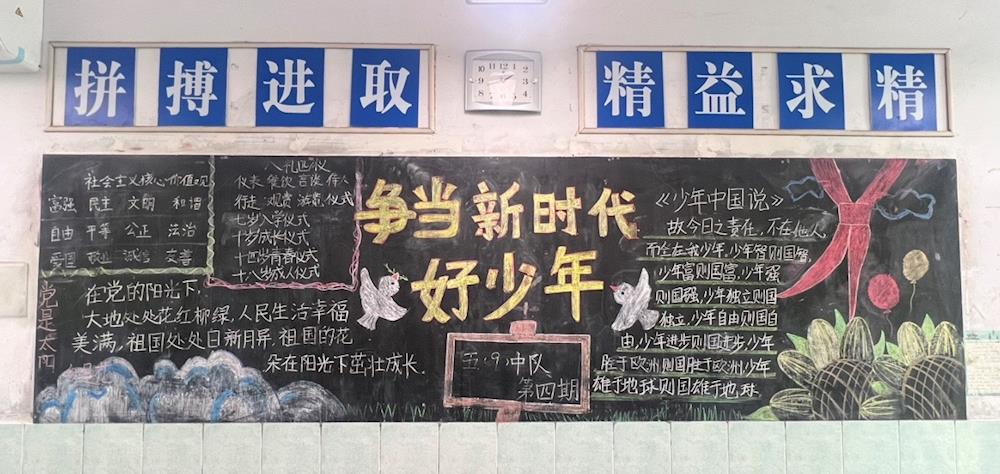 拼搏进取
精益求精
社会主义核心价值观
富强 民主 文明 和谐
自由 平等 公正 法治
爱国 敬业 诚信 友善
八礼四仪
仪表 餐饮 言谈 待人
行走 观赏 游览 仪式
七岁入学仪式
十岁成长仪式
十四岁青春仪式
十八岁成人仪式
争当新时代
好少年
党是太阳
在党的阳光下,
大地处处花红柳绿,人民生活幸福
美满,祖国处处日新月异,祖国的花
朵在阳光下茁壮成长.
五.9.中队
第四期
《少年中国说》
故今日之责任,不在他人,
而全在我少年,少年智则国智,
少年富则国富,少年强
则国强,少年独立则国
独立,少年自由则国自
由,少年进步则国进步,少年
胜于欧洲则国胜于欧洲,少年
雄于地球则国雄于地球